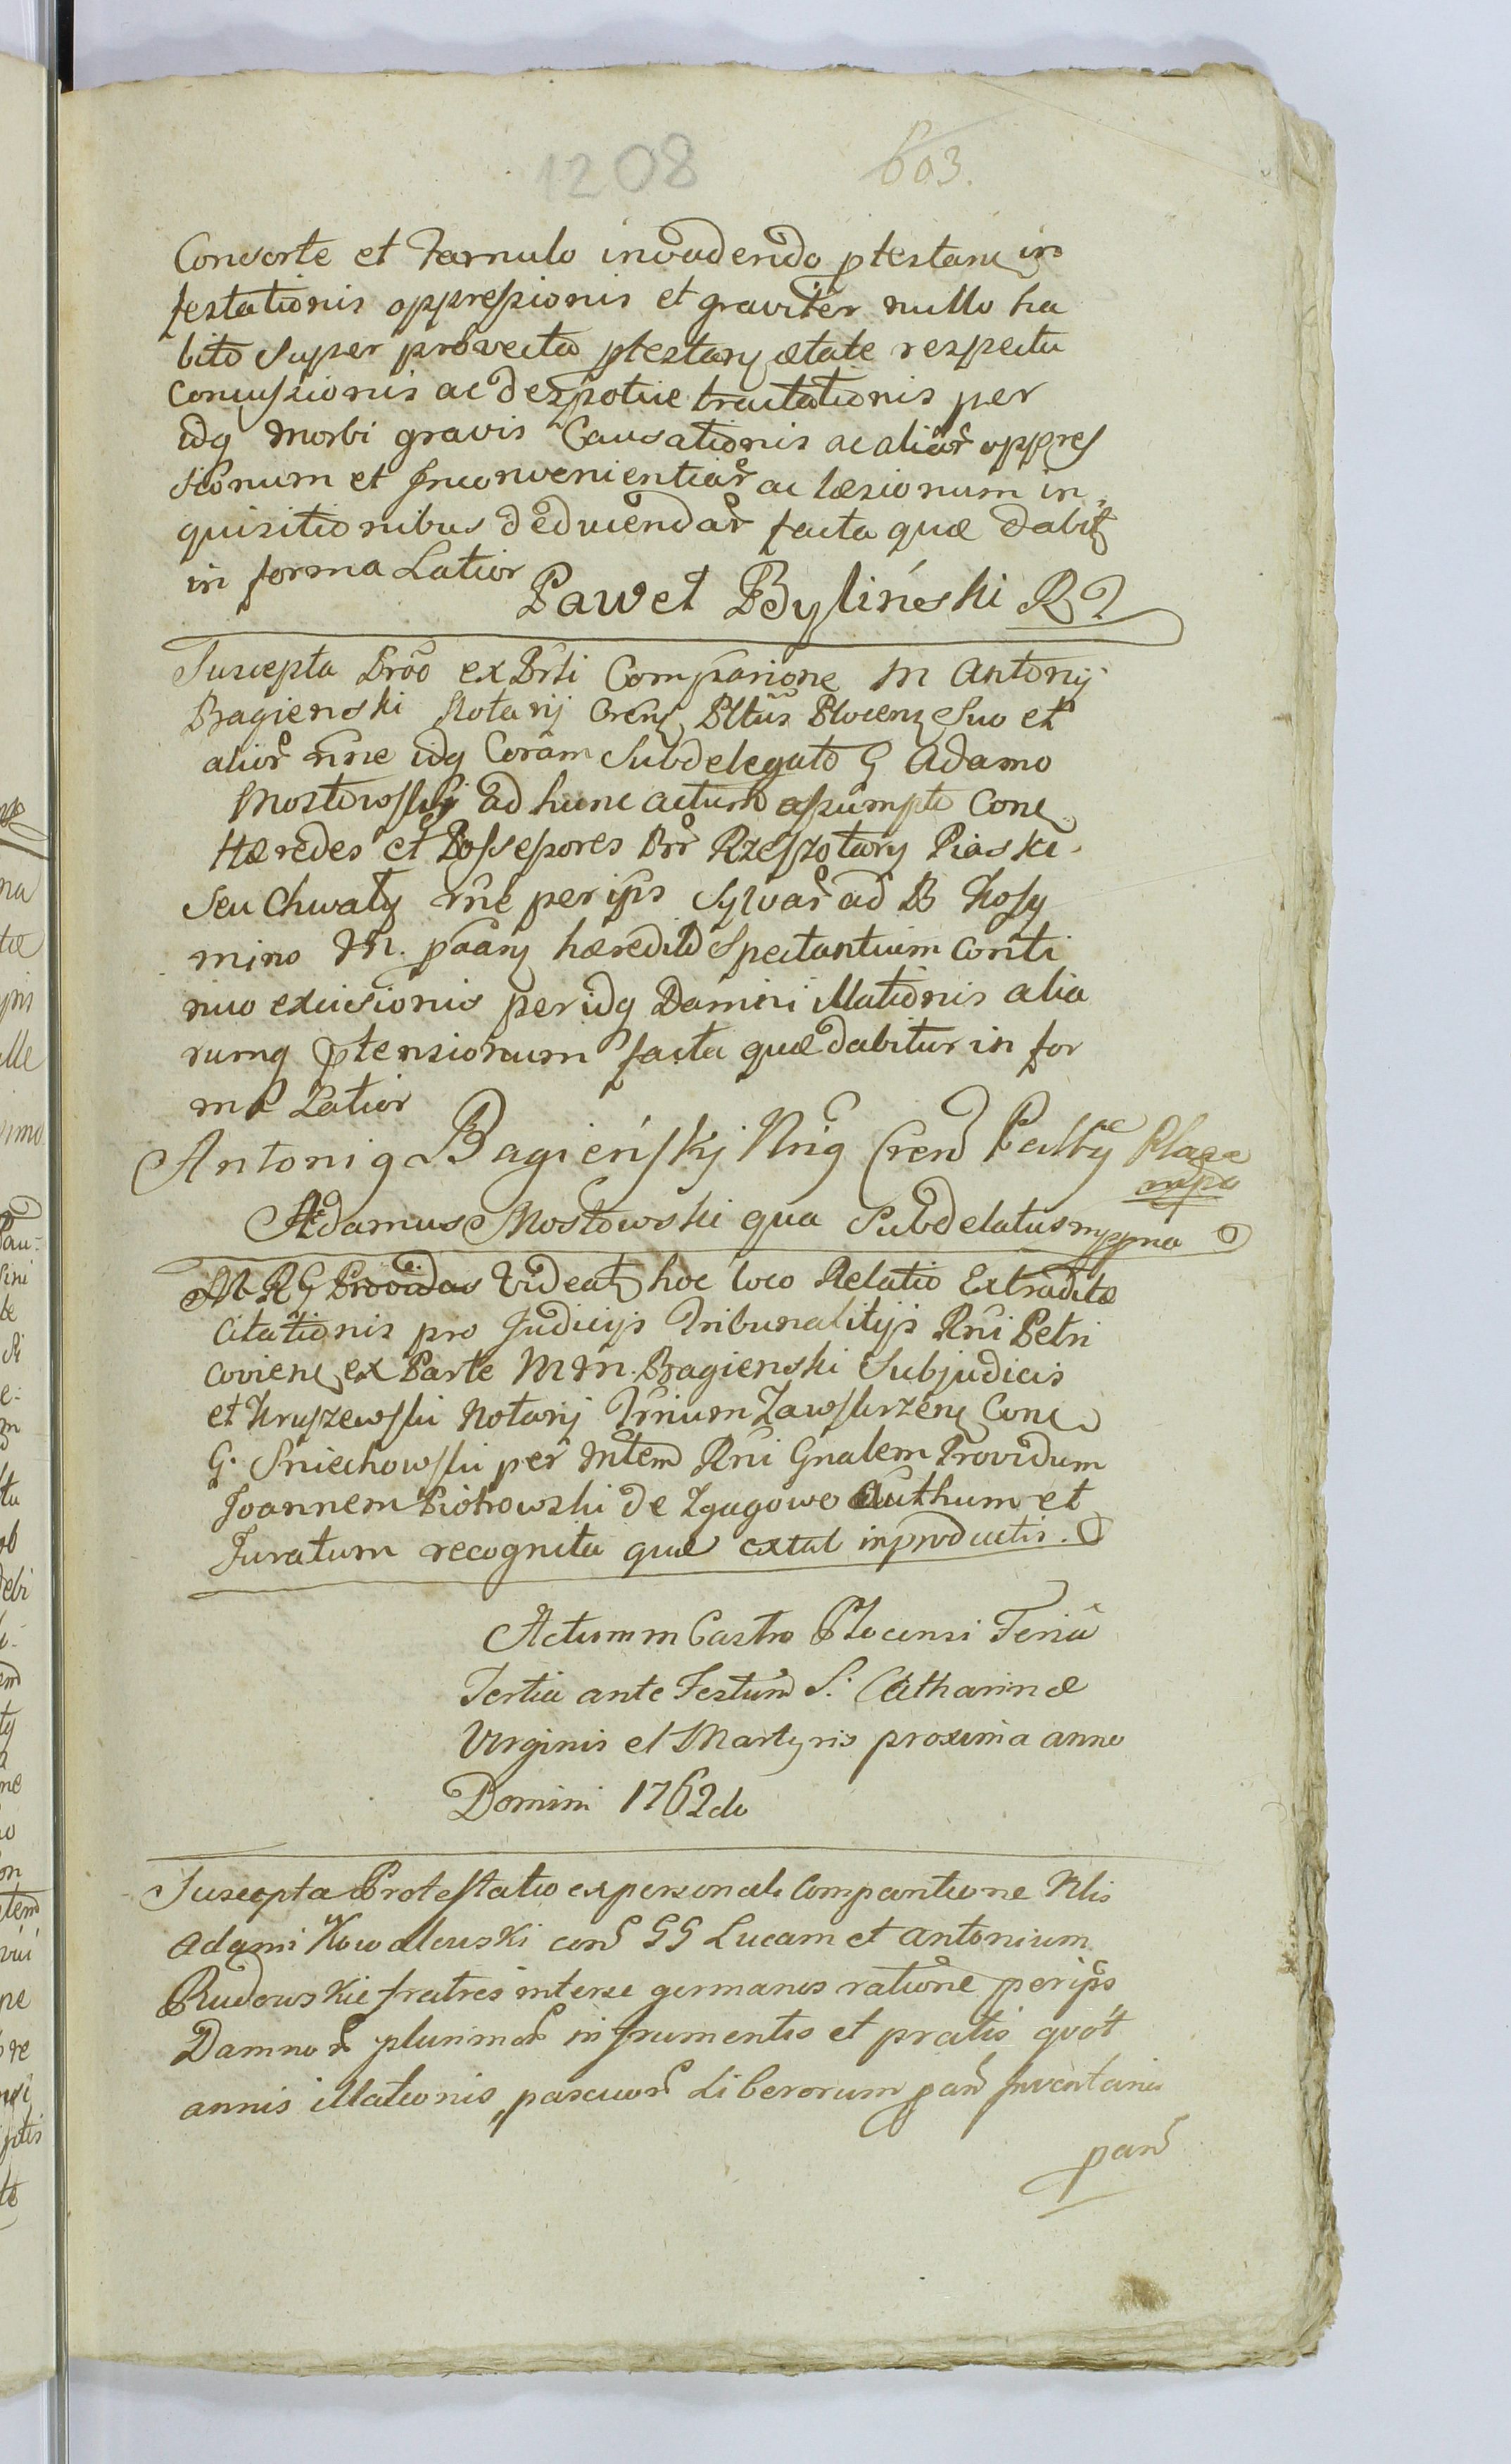 1208 603.
Consorte et famulo invadendo ptestanem in
festationis oppressionis et graviter nullo ha
bito super provecta ptestanz ætate respectu
Concussionis ac despotice tractationis per
idq morbi gravis Causationis ac aliar oppres
sionum et Inconvenientiar ac læsionum in
quisitionibus deducendar facta quæ dabitz
in forma Latior
Paweł Byliński
Suscepta Prõo ex Prsti Comparione M Antonij
Bagienski Notarij Cren Pltus Plocenz Suo et
alior nne idq Coram Subdelegato G Adamo
Mostowskj ad hunc actum assumpto Conc
Hæredes et Possessores Brr Rzeszotary Piaski
seu Chwały rne per ips Sylvar ad B Kosy
mino M. paarz hæredit Spectantium Conti
nuo excisionis per idq Damni illationis alia
rumq ptensionum facta quæ dabitur in for
ma Latior
Antoni9 Bagieńskj Crend
mpa
Adamus Mostowski qua Subdelatus mppria
Videatz hoc loco Relatio Extraditæ
Citationis pro Judicijs Tribunalitijs Rni Petri
coviens ex Parte M M. Bagienski Subjudicis
et Kruszewski Notarij Trrium Zawskrzenz Conc
G. Sniechowski per Mtem Rni Gnalem Providum
Joannem Piotrowski de Zgagowo Authum et
Juratum recognita quæ extat in productis.
Actum in Castro Plocensi Feria
Tertia ante Festum S. Catharinæ
Virginis et Martyris proxima anno
Domini 1762do
Suscepta Protestatio ex personali Comparitione Nlis
Adami Kowalewski con GG Lucam et Antonium
Rudowskie fratres inter se germanos ratione per ips
Damnor plurimor in frumentis et pratis quot
annis illationis, pascuor Liberorum pan Inventario
pan